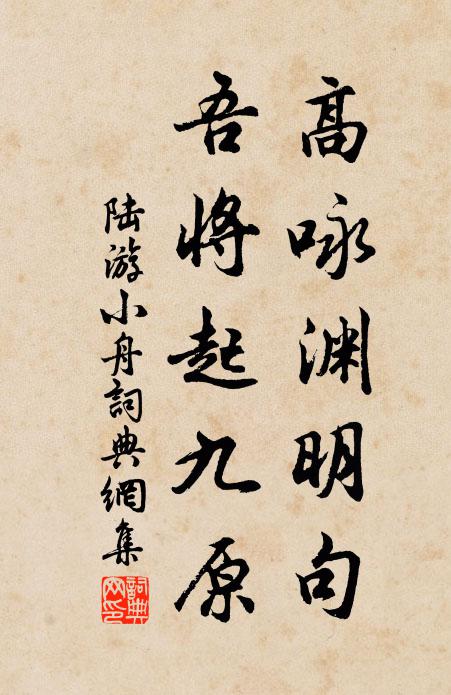 高咏渊明句
吾将起九原
陆游小舟詞典網集
詞典
网印